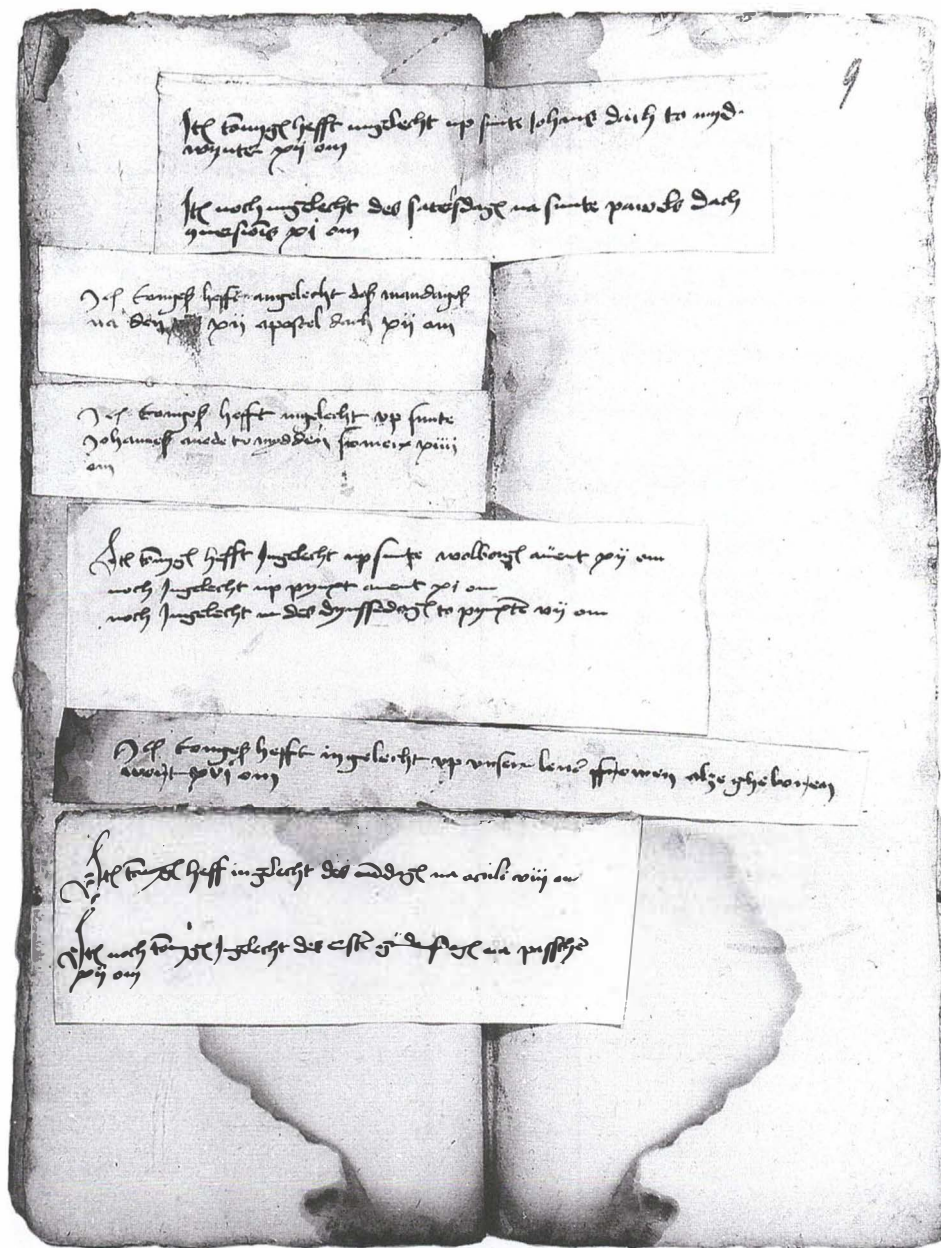 9
Itẽ tonnyges hefft ingelecht up sunte Johans dach to myd
wynter xij om
Itẽ noch ingelecht des saterdages na sunte pawels dach
9uersiõis xj om
Itẽ tonyges hefft ingelecht des mandages
na den xij apostel dach xij om
Itẽ tonyges hefft ingelecht vp sunte
Johannes to mydden somer xiiij
om
Itẽ tõnyges hefft Ingelecht up sunte wolborges auent xij om
noch Ingelecht up pynxt auent xj om
noch Ingelecht in des dynssedages to pynxtẽ vij om
Itẽ tonyges hefft ingelecht vp vnser leuẽ ffrowen alze gheboren
wort xvj om
Itẽ tõnyges heff ingelecht des mãdages na oculi viij om
Itẽ noch tõnyges Ingelecht des erstẽ na passchẽ
xij om